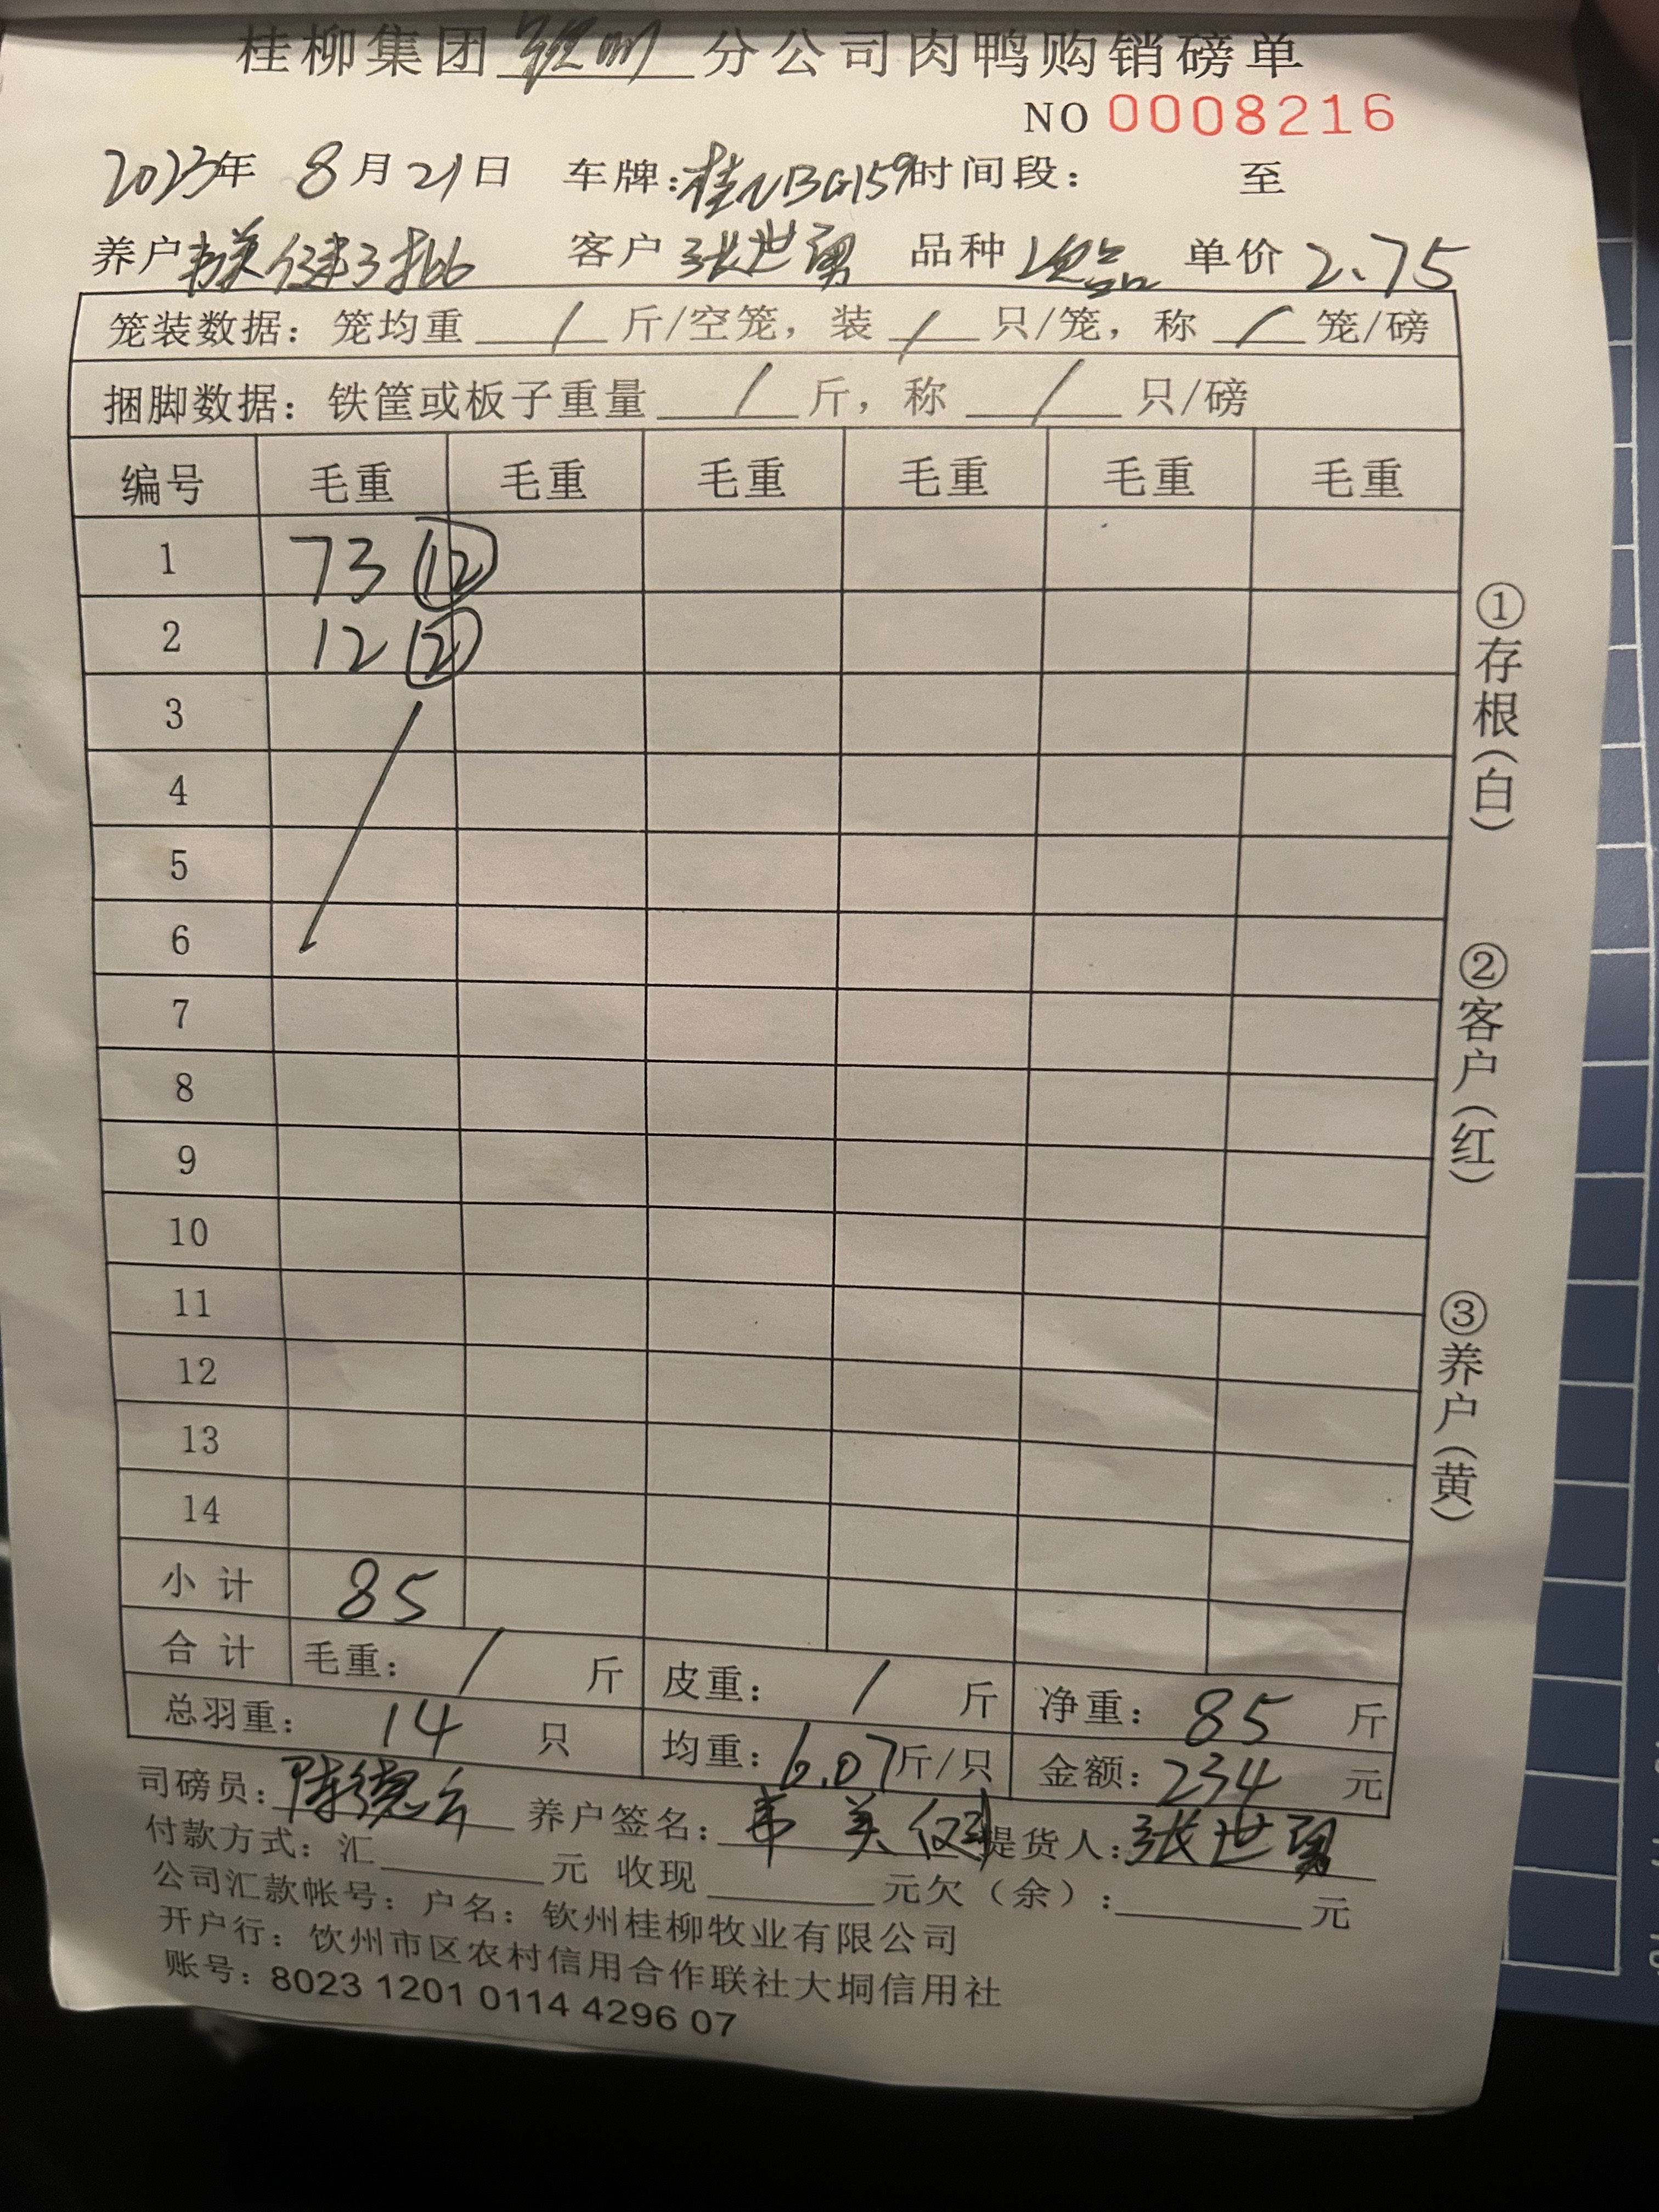 桂柳集团钦州分公司肉鸭购销磅单
NO 0008216
2023年 8月21日 车牌:桂NBG159时间段: 至
养户韦美健3批 客户张世勇 品种次品 单价2.75
笼装数据:笼均重 / 斤/空笼,装 / 只/笼,称 / 笼/磅
捆脚数据:铁筐或板子重量 / 斤,称 / 只/磅
编号 毛重 毛重 毛重 毛重 毛重 毛重
1 73 ⑫
2 12 ②
3
4
5
6
7
8
9
10
11
12
13
14
小计 85
合计 毛重: / 斤 皮重: / 斤 净重: 85 斤
总羽重: 14 只 均重:6.07斤/只 金额:234 元
司磅员:陈德云 养户签名:韦美健 提货人:张世勇
付款方式:汇 元 收现 元欠(余): 元
公司汇款帐号:户名:钦州桂柳牧业有限公司
开户行:饮州市区农村信用合作联社大垌信用社
账号:8023 1201 0114 4296 07
①存根(白)
②客户(红)
③养户(黄)